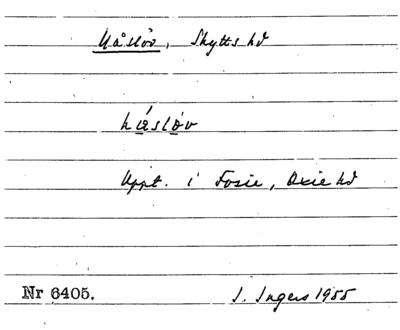 Håslöv, Skytts hd
hásløv
Uppt. i Fosie, Oxie hd
Nr 6405.
I. Ingers 1955